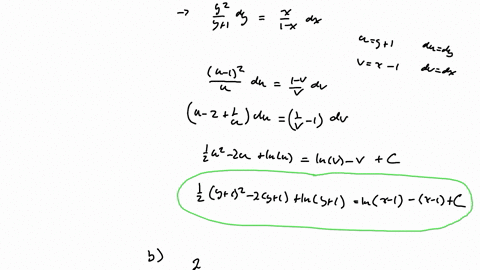 → y²/(y+1) dy = x/(1-x) dx
u=y+1 du=dy
v=x-1 dv=dx
(u-1)²/u du = (1-v)/v dv
(u-2+1/u) du = (1/v -1) dv
½u²-2u+ln(u) = ln(v)-v + C
½(y+1)²-2(y+1)+ln(y+1) = ln(x-1) - (x-1)+C
b) 2